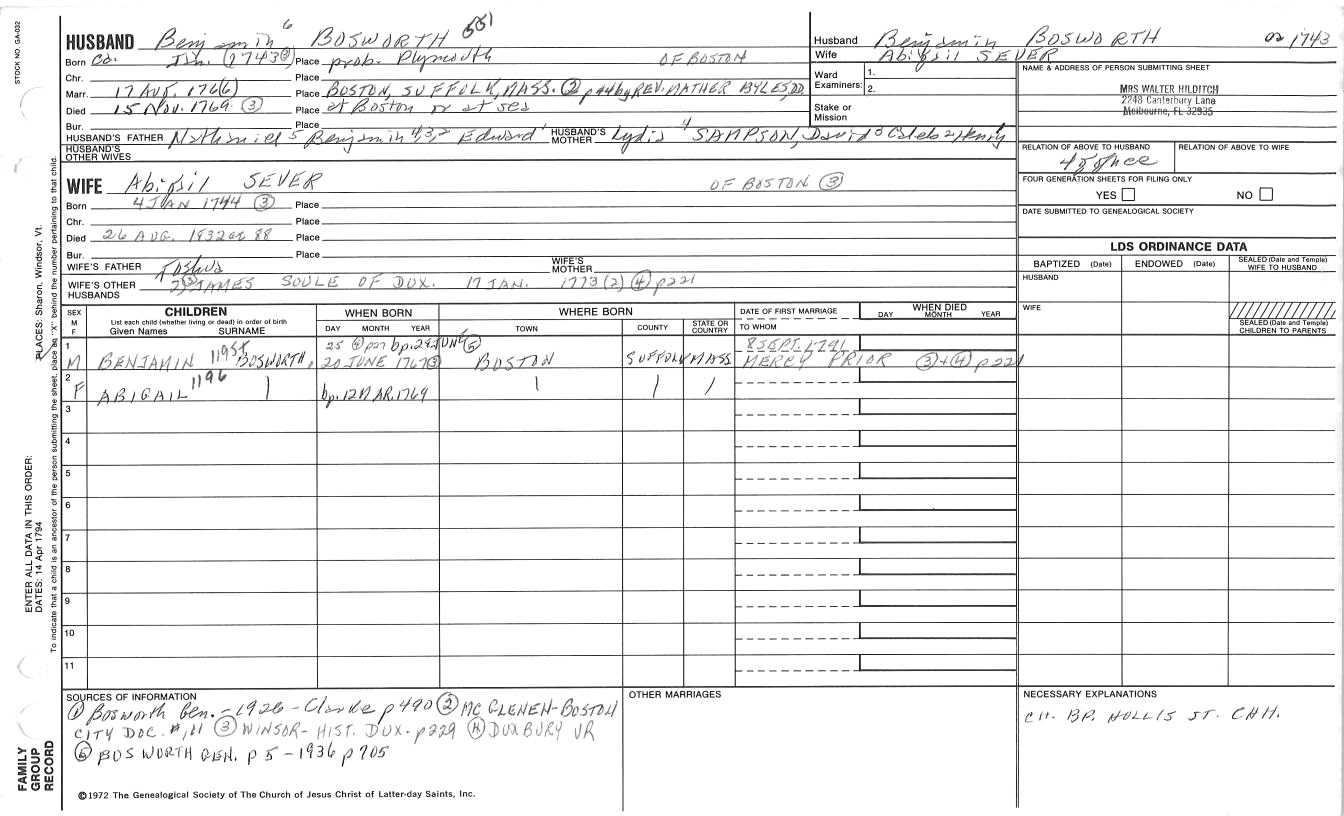 STOCK NO. GA-032
HUSBAND Benjamin 6 BOSWORTH 551
Born Ca. Jan. (1743 ③) Place prob. Plymouth OF BOSTON
Chr. Place
Marr. 17 AUG. 1766) Place BOSTON, SUFFOLK, MASS. ② p44 by REV. MATHER BYLES, DD
Died 15 Nov. 1769 ③ Place at Boston or at sea
Bur. Place
HUSBAND'S FATHER Nathaniel 5 Benjamin 4,3,2 Edward 1 HUSBAND'S MOTHER Lydia 4 SAMPSON, David 3 Caleb 2 Henry
HUSBAND'S OTHER WIVES
WIFE Abigail SEVER OF BOSTON ③
Born 4 JAN 1744 ③ Place
Chr. Place
Died 26 AUG. 1832 at 88 Place
Bur. Place
WIFE'S FATHER Joshua WIFE'S MOTHER
WIFE'S OTHER HUSBANDS 2) ③ JAMES SOULE OF DUX. 17 JAN. 1773 (2) ④ p221
Husband Benjamin BOSWORTH 1743
Wife Abigail SEVER
Ward Examiners: 1.
2.
Stake or Mission
NAME & ADDRESS OF PERSON SUBMITTING SHEET
MRS WALTER HILDITCH
2248 Canterbury Lane
Melbourne, FL 32935
RELATION OF ABOVE TO HUSBAND RELATION OF ABOVE TO WIFE
FOUR GENERATION SHEETS FOR FILING ONLY
YES NO
DATE SUBMITTED TO GENEALOGICAL SOCIETY
LDS ORDINANCE DATA
BAPTIZED (Date) ENDOWED (Date) SEALED (Date and Temple) WIFE TO HUSBAND
HUSBAND
WIFE
SEALED (Date and Temple) CHILDREN TO PARENTS
SEX M F
CHILDREN
List each child (whether living or dead) in order of birth
Given Names SURNAME
WHEN BORN
DAY MONTH YEAR
WHERE BORN
TOWN COUNTY STATE OR COUNTRY
DATE OF FIRST MARRIAGE
TO WHOM
WHEN DIED
DAY MONTH YEAR
1 25 ④ p27 bp. 28 JUNE ⑤ 8 SEPT. 1791
M BENJAMIN 1195 BOSWORTH, 20 JUNE 1767 ③ BOSTON SUFFOLK MASS MERCY PRIOR ③+④ p221
2
F ABIGAIL 1196 bp. 12 MAR. 1769
3
4
5
6
7
8
9
10
11
SOURCES OF INFORMATION
① Bosworth Gen. - 1926 - Clarke p 490 ② MC GLENEN - BOSTON
CITY DOC. #, 11 ③ WINSOR - HIST. DUX. p229 ④ DUXBURY VR
⑤ BOSWORTH GEN. p 5 - 1936 p 705
OTHER MARRIAGES
NECESSARY EXPLANATIONS
CH. BP. HOLLIS ST. CHH.
©1972 The Genealogical Society of The Church of Jesus Christ of Latter-day Saints, Inc.
ENTER ALL DATA IN THIS ORDER:
DATES: 14 Apr 1794
PLACES: Sharon, Windsor, Vt.
To indicate that a child is an ancestor of the person submitting the sheet, place an "X" behind the number pertaining to that child.
FAMILY
GROUP
RECORD